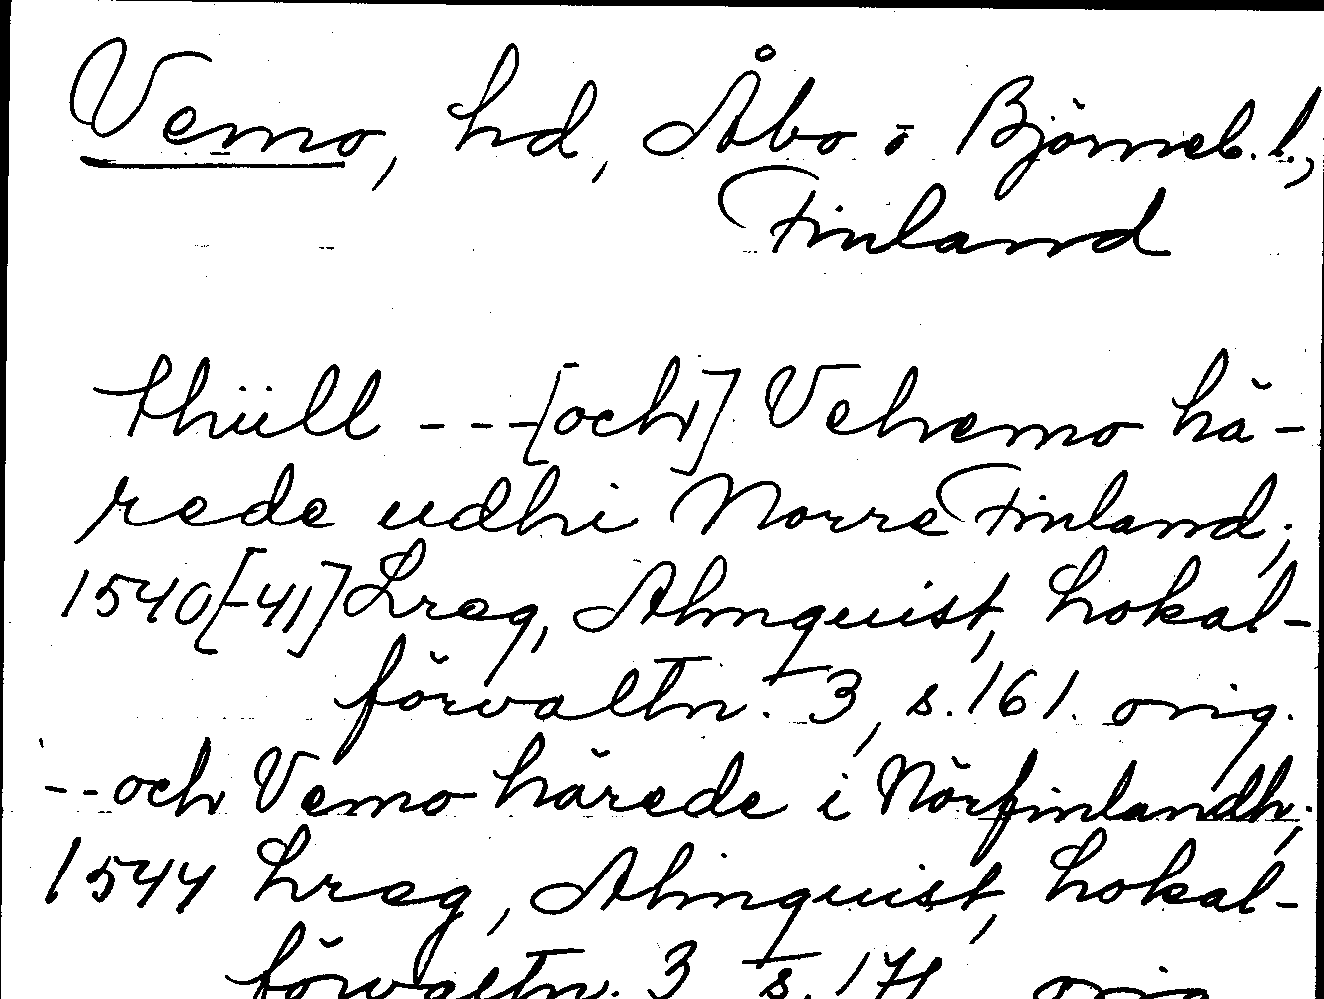 Vemo, hd, Åbo o Björneb. l.,
Finland
thüll --- [och] Vehemo hä-
rede udhi Norre Finland;
1540[-41] Lreg, Almquist, Lokal-
förvaltn. 3, s. 161. orig.
-- och Vemo härede i Nörfinlandh;
1544 Lreg, Almquist, Lokal-
förvaltn. 3 s. 171 orig